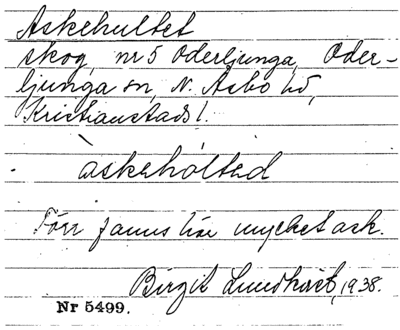 Askehultet
skog, nr 5 Oderljunga, Oder-
ljunga sn, N. Åsbo hd,
Kristianstads l.
àskehòltəd
Förr fanns här mycket ask.
Birgit Lundkvist, 1938.
Nr 5499.